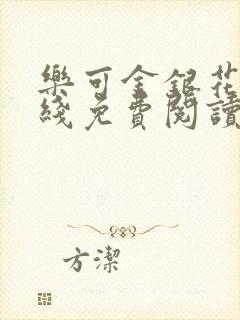 樂可金銀花
綫免費閱讀
方潔